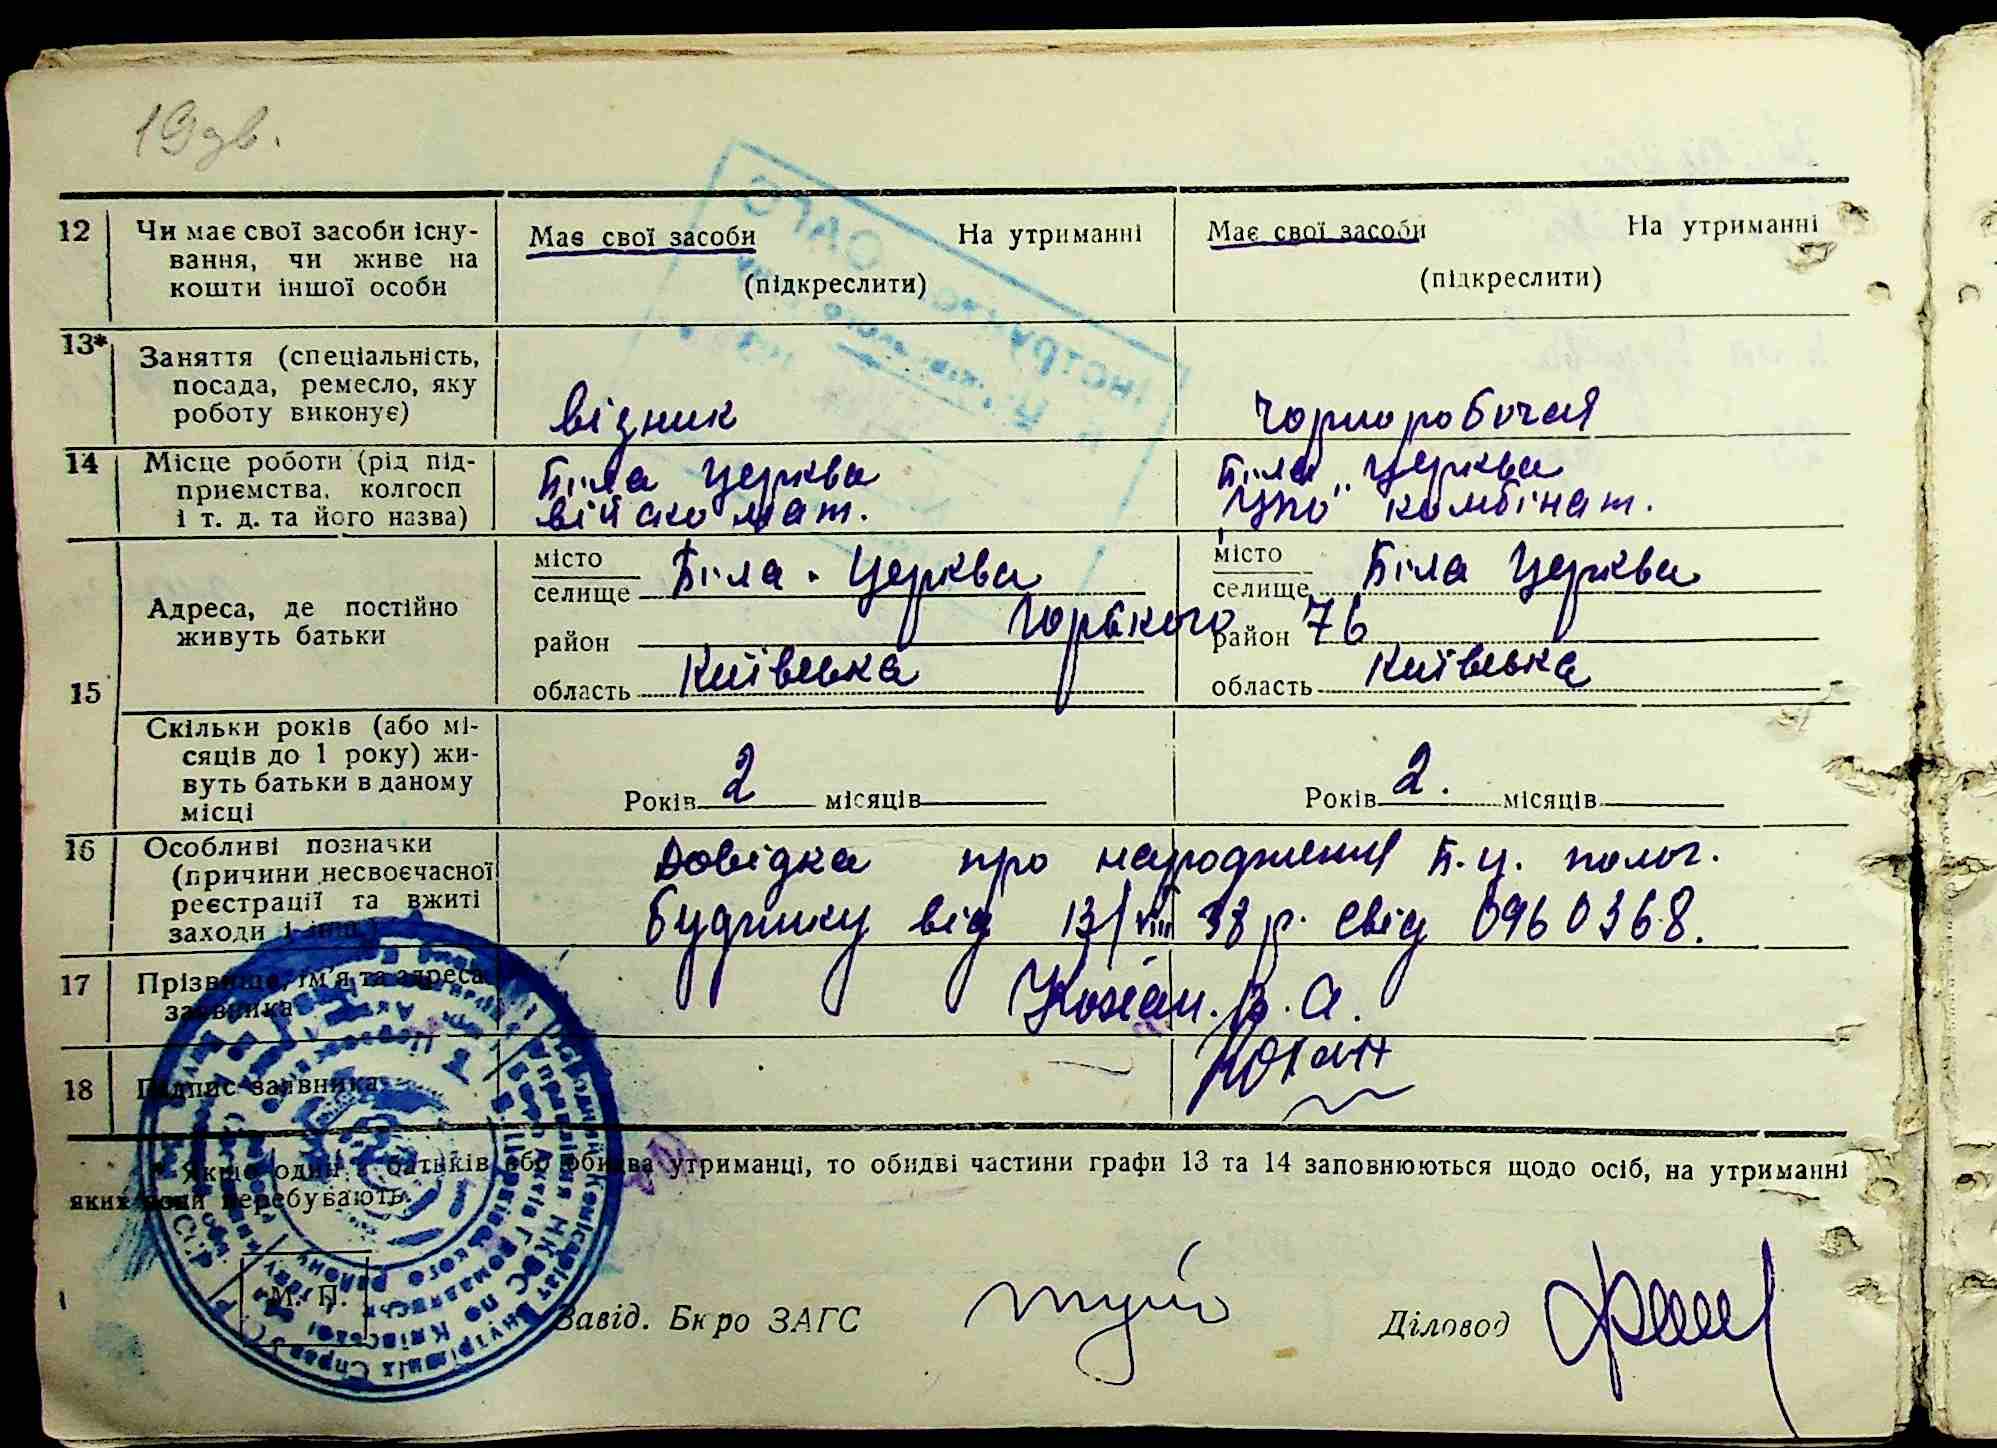 19 зв.
12 Чи має свої засоби існу-
вання, чи живе на
кошти іншої особи
Має свої засоби На утриманні
(підкреслити)
Має свої засоби На утриманні
(підкреслити)
13* Заняття (спеціальність,
посада, ремесло, яку
роботу виконує)
візник
чорноробочая
14 Місце роботи (рід під-
приємства, колгосп
і т. д. та його назва)
Біла Церква
військомат.
Біла Церква
комбінат.
15 Адреса, де постійно
живуть батьки
місто
селище Біла Церква
район Горького 76
область Київська
місто
селище Біла Церква
район
область Київська
Скільки років (або мі-
сяців до 1 року) жи-
вуть батьки в даному
місці
Років 2 місяців
Років 2. місяців
16 Особливі позначки
(причини несвоєчасної
реєстрації та вжиті
заходи і інш.)
Довідка про народження Б.Ц. полог.
будинку від 13/VIII 38 р. свід 0960368.
17 Прізвище, ім'я та адреса
заявника
Кохан. В. А.
18 Підпис заявника
Кохан
* Якщо один з батьків або обидва утриманці, то обидві частини графи 13 та 14 заповнюються щодо осіб, на утриманні
яких вони перебувають.
М. П.
Завід. Бюро ЗАГС
Діловод